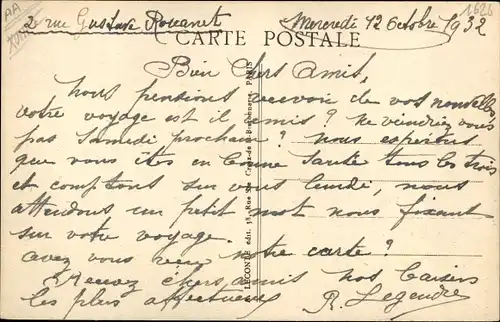 2 rue Gustave Rouanet Mercredi 12 Octobre 1932
CARTE POSTALE
Bien chers amis,
nous pensions recevoir de vos nouvelles,
votre voyage est il remis? Ne viendriez vous
pas Samedi prochain? nous espérons
que vous êtes en bonne Santé tous les trois
et comptons sur vous lundi, nous
attendons un petit mot nous fixant
sur votre voyage.
avez vous reçu notre carte?
Recevez chers amis nos baisers
les plus affectueux R. Legendre
LECONTE edit. 38, Rue Ste Croix-de-la-Bretonnerie, PARIS
AA